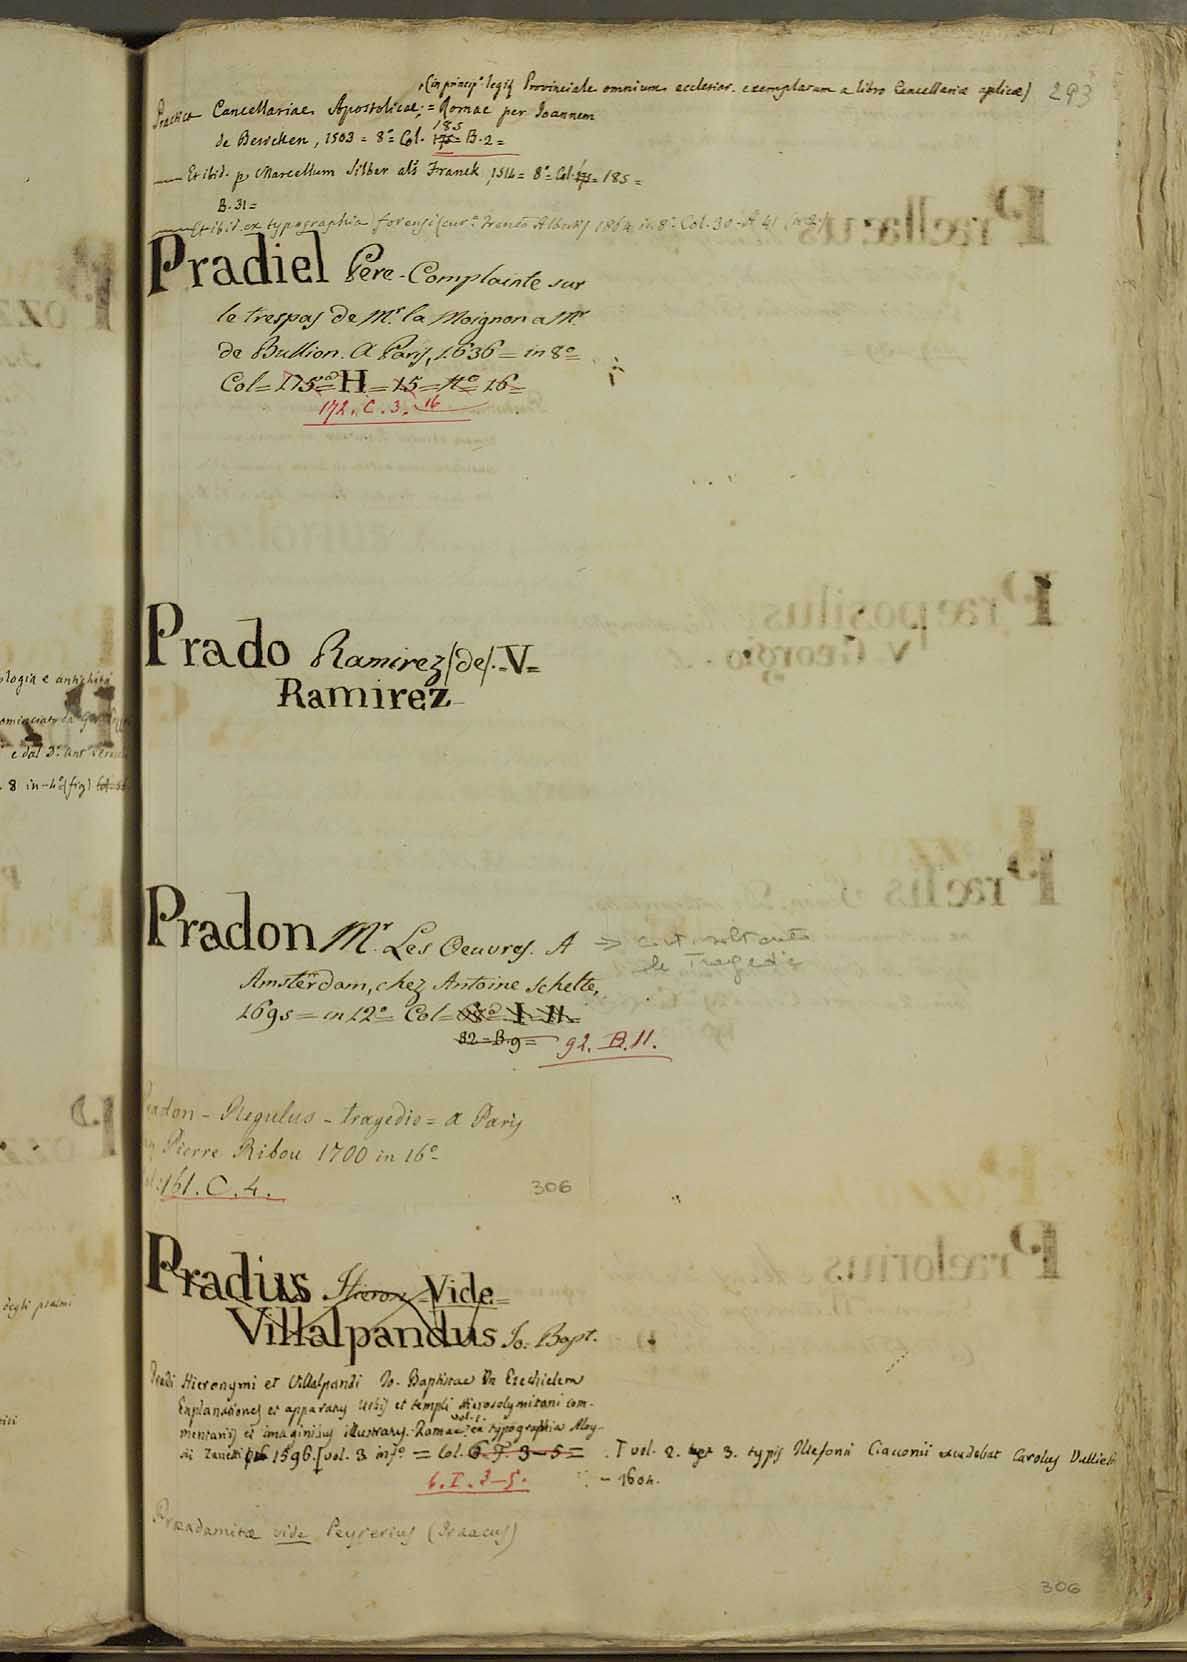 (in princip° legit Provinciale omnium ecclesiar. exemplarum a libro Cancellariæ aplicæ) 293
Practica Cancellariae Apostolicae = Romae per Joannem
185
de Beseken, 1503 = 8° Col. 175 = B. 2 =
Et ibid. p. Marcellum Silber als Franck, 1516 = 8° = Col. 175 = 185 =
B. 31 =
Et ibid. ex typographia forensi 1864 in 8° Col. 30 - A 41
Pradiel Pere - Complainte sur
le trespas de Mr. la Moignon a Mr.
de Bullion. A Paris, 1636 = in 8° =
Col = 175 = H = 15 = n° 16 =
172. C. 3. 16
Prado Ramirez (de). = V =
Ramirez
Pradon Mr. Les Oeuvres. A
→ le Tragedie
Amsterdam, chez Antoine Schelte,
1695 = in 12° Col = I = 11 =
32 = B. 9 = 92. B. 11.
Pradon - Regulus - tragedie = a Paris
Pierre Ribou 1700 in 16°
161. C. 4.
306
Pradius Hieron = Vide =
Villalpandus Jo: Bapt.
Pradi Hieronymi et Villalpandi Jo. Baptistae In Ezechielem
Explanationes et apparatus Urbis et templi Hierosolymitani com-
mentariis et imaginibus illustratus. Romae vol. 1. ex typographia Aloy-
sii Zanetti 1596. [vol. 3 in f° = Col. 6. F. 3-5 = . [vol. 2. 3. typis Illefonsi Ciacconii excudebat Carolus Vulliet
6. I. 3-5. - 1604.
Præadamitæ vide Peyrerius (Isaacus)
306
ologia e antichità
e dal D.
8 in-4° (fig)
degli psalmi